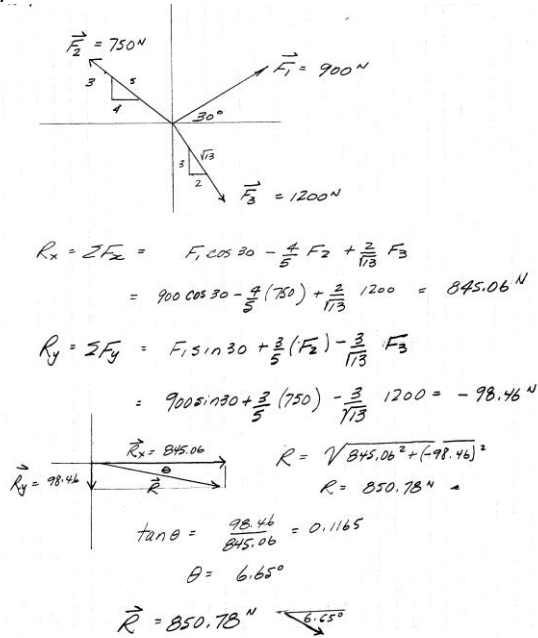 F₂ = 750 N
F₁ = 900 N
3 5
4
30°
3 √13
2
F₃ = 1200 N
Rx = ΣFx = F₁ cos 30 - 4/5 F₂ + 2/√13 F₃
= 900 cos 30 - 4/5 (750) + 2/√13 1200 = 845.06 N
Ry = ΣFy = F₁ sin 30 + 3/5 (F₂) - 3/√13 F₃
= 900 sin 30 + 3/5 (750) - 3/√13 1200 = - 98.46 N
Rx = 845.06
θ
Ry = 98.46
R
R = √845.06² + (-98.46)²
R = 850.78 N
tan θ = 98.46/845.06 = 0.1165
θ = 6.65°
R = 850.78 N 6.65°